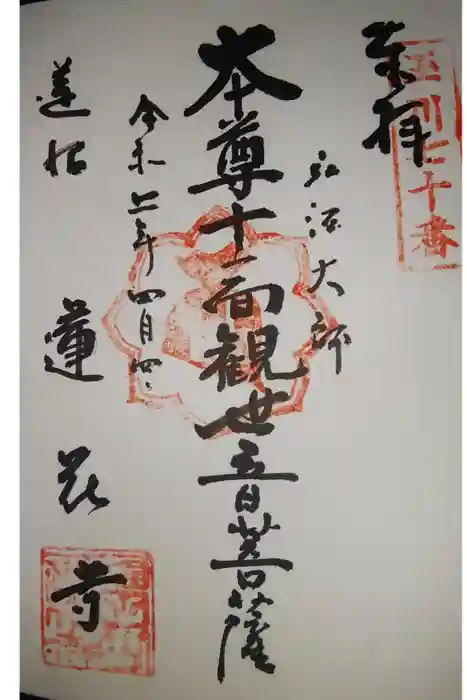 玉川七十番
奉拝
弘法大師
本尊十一面観世音菩薩
令和二年四月四日
蓮沼 蓮花寺